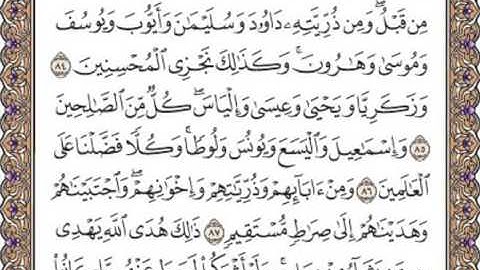 مِن قَبْلُ ۖ وَمِن ذُرِّيَّتِهِۦ دَاوُۥدَ وَسُلَيْمَٰنَ وَأَيُّوبَ وَيُوسُفَ
وَمُوسَىٰ وَهَٰرُونَ ۚ وَكَذَٰلِكَ نَجْزِى ٱلْمُحْسِنِينَ ٨٤
وَزَكَرِيَّا وَيَحْيَىٰ وَعِيسَىٰ وَإِلْيَاسَ ۖ كُلٌّ مِّنَ ٱلصَّٰلِحِينَ
٨٥ وَإِسْمَٰعِيلَ وَٱلْيَسَعَ وَيُونُسَ وَلُوطًا ۚ وَكُلًّا فَضَّلْنَا عَلَى
ٱلْعَٰلَمِينَ ٨٦ وَمِنْ ءَابَآئِهِمْ وَذُرِّيَّٰتِهِمْ وَإِخْوَٰنِهِمْ ۖ وَٱجْتَبَيْنَٰهُمْ
وَهَدَيْنَٰهُمْ إِلَىٰ صِرَٰطٍ مُّسْتَقِيمٍ ٨٧ ذَٰلِكَ هُدَى ٱللَّهِ يَهْدِى